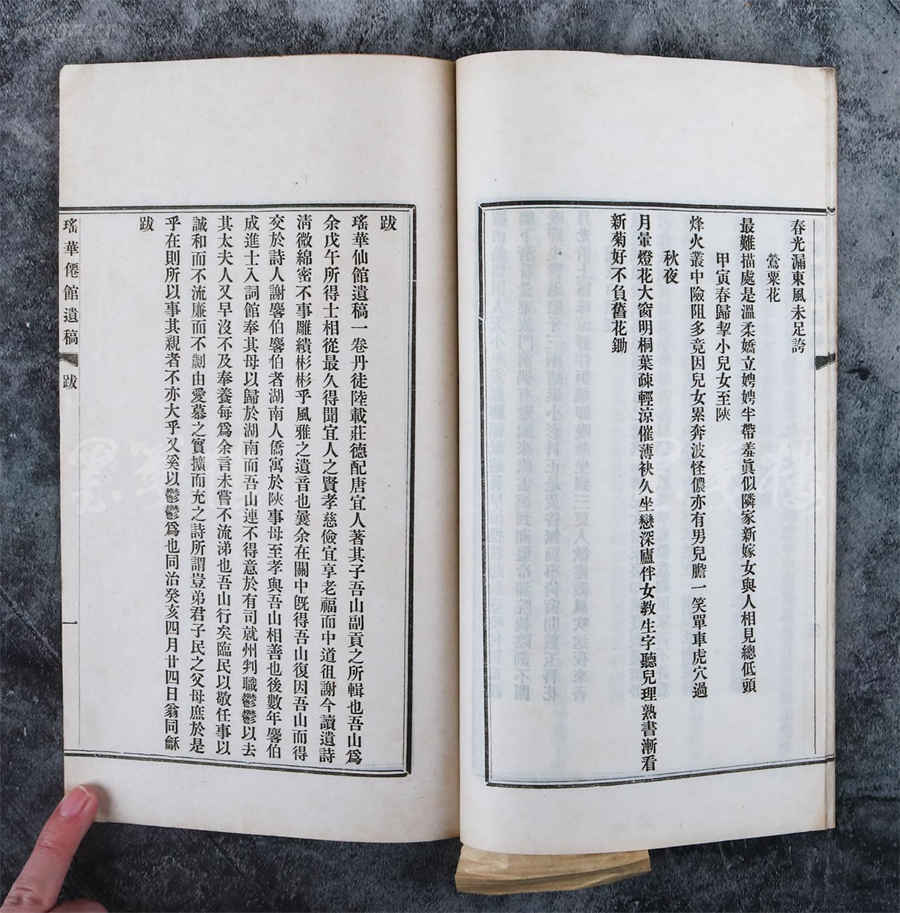 春光漏東風未足誇
鶯粟花
最難描處是溫柔嬌立娉娉半帶羞眞似隣家新嫁女與人相見總低頭
甲寅春歸挈小兒女至陝
烽火叢中險阻多竟因兒女累奔波怪儂亦有男兒膽一笑單車虎穴過
秋夜
月暈燈花大窗明桐葉疎輕涼催薄袂久坐戀深廬伴女敎生字聽兒理熟書漸看
新菊好不負舊花鋤
跋
瑤華仙館遺稿一卷丹徒陸載莊德配唐宜人著其子吾山副貢之所輯也吾山爲
余戊午所得士相從最久得聞宜人之賢孝慈儉宜享老福而中道徂謝今讀遺詩
淸微綿密不事雕繢彬彬乎風雅之遺音也曩余在關中旣得吾山復因吾山而得
交於詩人謝麐伯麐伯者湖南人僑寓於陝事母至孝與吾山相善也後數年麐伯
成進士入詞館奉其母以歸於湖南而吾山連不得意於有司就州判職鬱鬱以去
其太夫人又早沒不及奉養每爲余言未嘗不流涕也吾山行矣臨民以敬任事以
誠和而不流廉而不劌由愛慕之實擴而充之詩所謂豈弟君子民之父母庶於是
乎在則所以事其親者不亦大乎又奚以鬱鬱爲也同治癸亥四月廿四日翁同龢
跋
瑤華僊館遺稿
跋
一